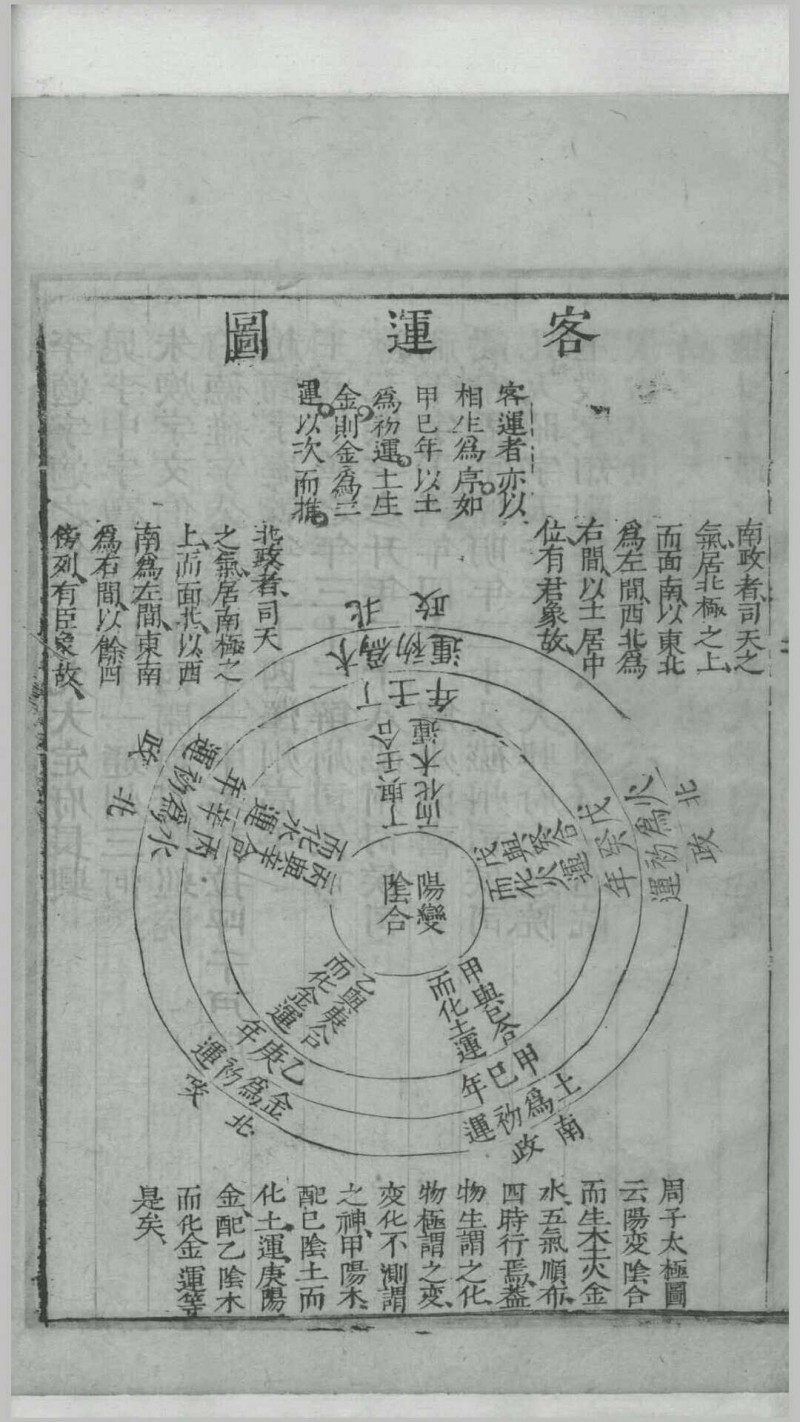 客運圖
客運者亦以
相生爲序如
甲巳年以土
爲初運土生
金則金爲二
運以次而推
南政者司天之
氣居北極之上
而面南以東北
爲左間西北爲
右間以土居中
位有君象故
北政者司天
之氣居南極之
上而面北以西
南爲左間東南
爲右間以餘四
傍列有臣象故
陽變
陰合
甲與巳合
而化土運
甲巳年
土爲初運
南政
乙與庚合
而化金運
乙庚年
金爲初運
北政
丙與辛合
而化水運
丙辛年
水爲初運
北政
丁與壬合
而化木運
丁壬年
木爲初運
北政
戊與癸合
而化火運
戊癸年
火爲初運
北政
周子太極圖
云陽变陰合
而生木土火金
水五氣順布
四時行焉蓋
物生謂之化
物極謂之变
变化不測謂
之神甲陽木
配巳陰土而
化土運庚陽
金配乙陰木
而化金運等
是矣